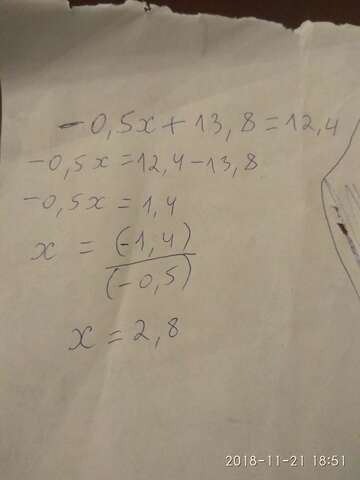 -0,5x+13,8=12,4
-0,5x=12,4-13,8
-0,5x=1,4
x = (-1,4)/(-0,5)
x=2,8
2018-11-21 18:51